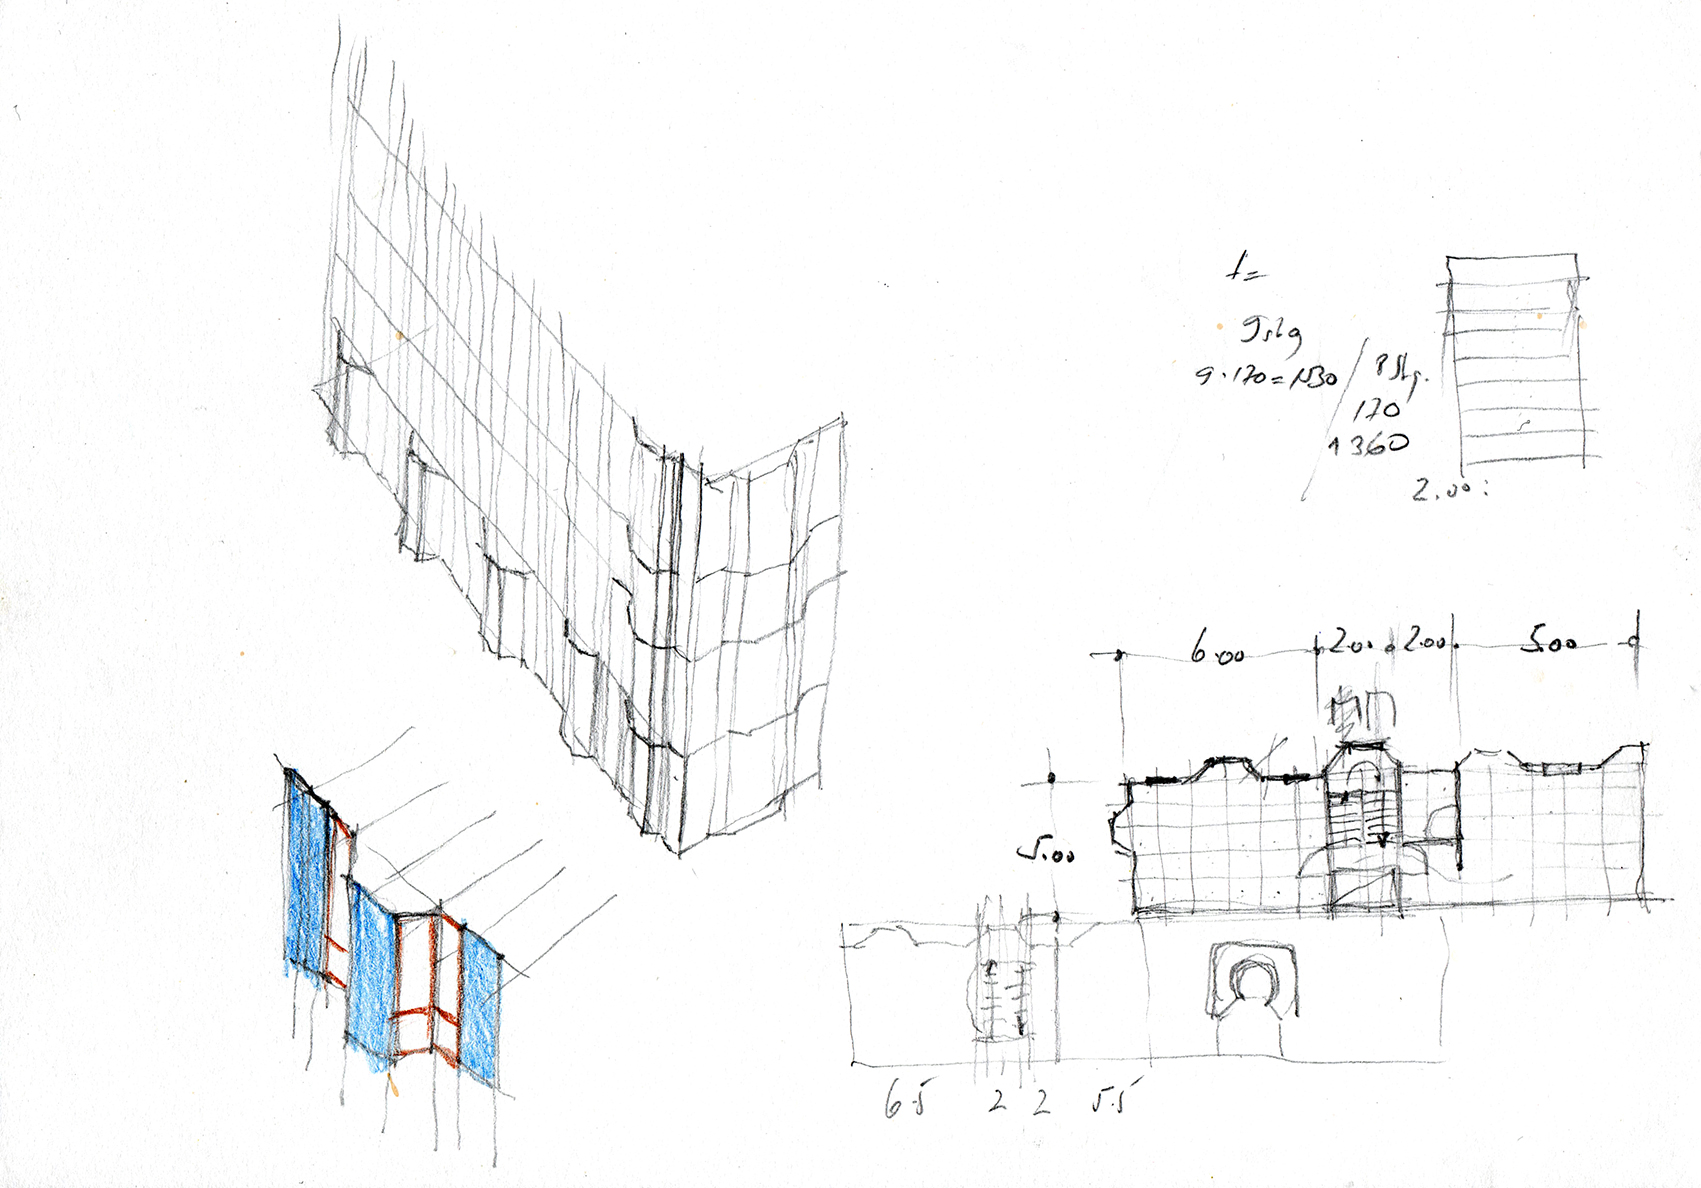 9 Stg
9·170=1530 / 8 Stg.
170
1360
2.00
6.00 2.00 2.00 5.00
5.00
6.5 2 2 5.5